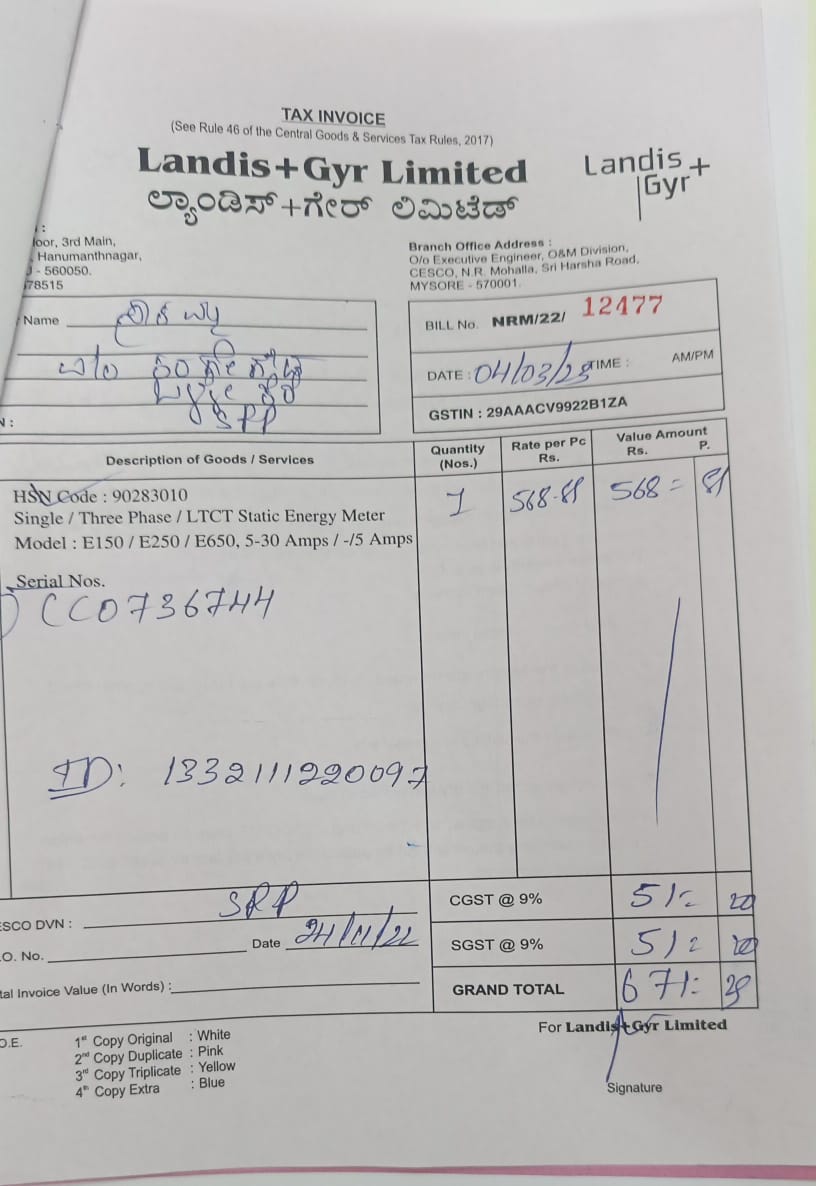 TAX INVOICE
(See Rule 46 of the Central Goods & Services Tax Rules, 2017)
Landis+Gyr Limited
ಲ್ಯಾಂಡಿಸ್+ಗೇರ್ ಲಿಮಿಟೆಡ್
Landis+
Gyr
:
loor, 3rd Main,
Hanumanthnagar,
- 560050.
78515
Branch Office Address :
O/o Executive Engineer, O&M Division,
CESCO, N.R. Mohalla, Sri Harsha Road,
MYSORE - 570001.
Name
SPP
N :
BILL No. NRM/22/ 12477
DATE : 04/03/23 TIME : AM/PM
GSTIN : 29AAACV9922B1ZA
Description of Goods / Services
Quantity (Nos.)
Rate per Pc Rs.
Value Amount Rs. P.
HSN Code : 90283010
1 568-81 568= 81
Single / Three Phase / LTCT Static Energy Meter
Model : E150 / E250 / E650, 5-30 Amps / -/5 Amps
Serial Nos.
CC0736744
ID: 1332111220097
ESCO DVN : SRP
CGST @ 9% 51= 20
.O. No. Date 24/11/22
SGST @ 9% 51= 20
tal Invoice Value (In Words) :
GRAND TOTAL 671=
O.E.
1st Copy Original : White
2nd Copy Duplicate : Pink
3rd Copy Triplicate : Yellow
4th Copy Extra : Blue
For Landis+Gyr Limited
Signature